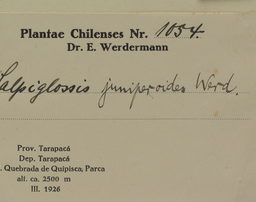 Plantae Chilenses Nr. 1054.
Dr. E. Werdermann
Salpiglossis juniperoides Werd.
Prov. Tarapacá
Dep. Tarapacá
Quebrada de Quipisca; Parca
alt. ca. 2500 m
III. 1926